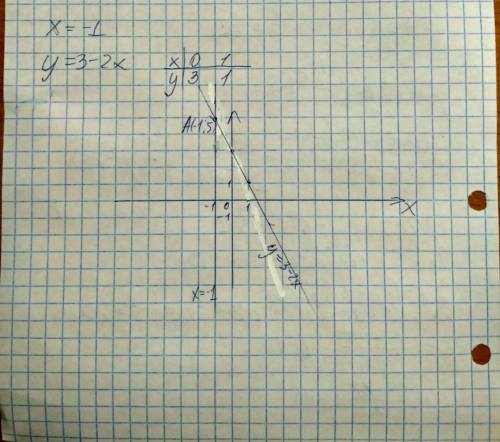 x = -1
y = 3-2x
x 0 1
y 3 1
A(-1;5)
1
-1 0 1
-1
x
y=3-2x
x=-1